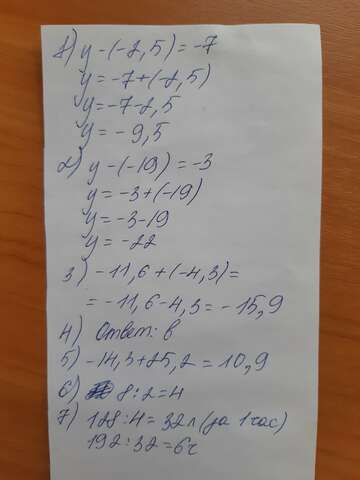 1) y-(-2,5)=-7
y=-7+(-2,5)
y=-7-2,5
y=-9,5
2) y-(-19)=-3
y=-3+(-19)
y=-3-19
y=-22
3) -11,6+(-4,3)=
=-11,6-4,3=-15,9
4) Ответ: в
5) -14,3+25,2=10,9
6) 8:2=4
7) 128:4=32л(за 1час)
192:32=6ч